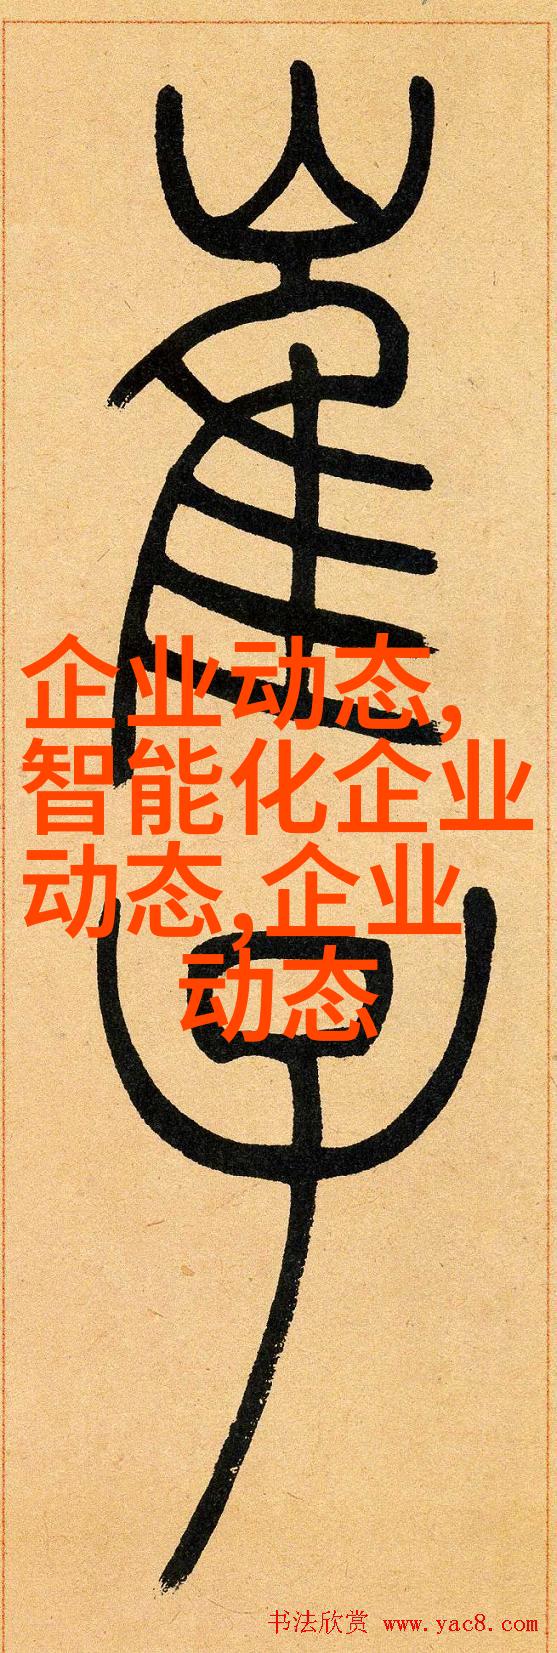 崔子
企业动态,
智能化企业
动态,企业
动态
书法欣赏 www.yac8.com